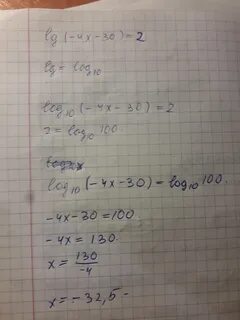 lg(-4x-30)=2
lg = log₁₀
log₁₀(-4x-30)=2
2=log₁₀ 100.
log₁₀(-4x-30)=log₁₀100.
-4x-30=100.
-4x=130
x = 130/-4
x=-32,5-